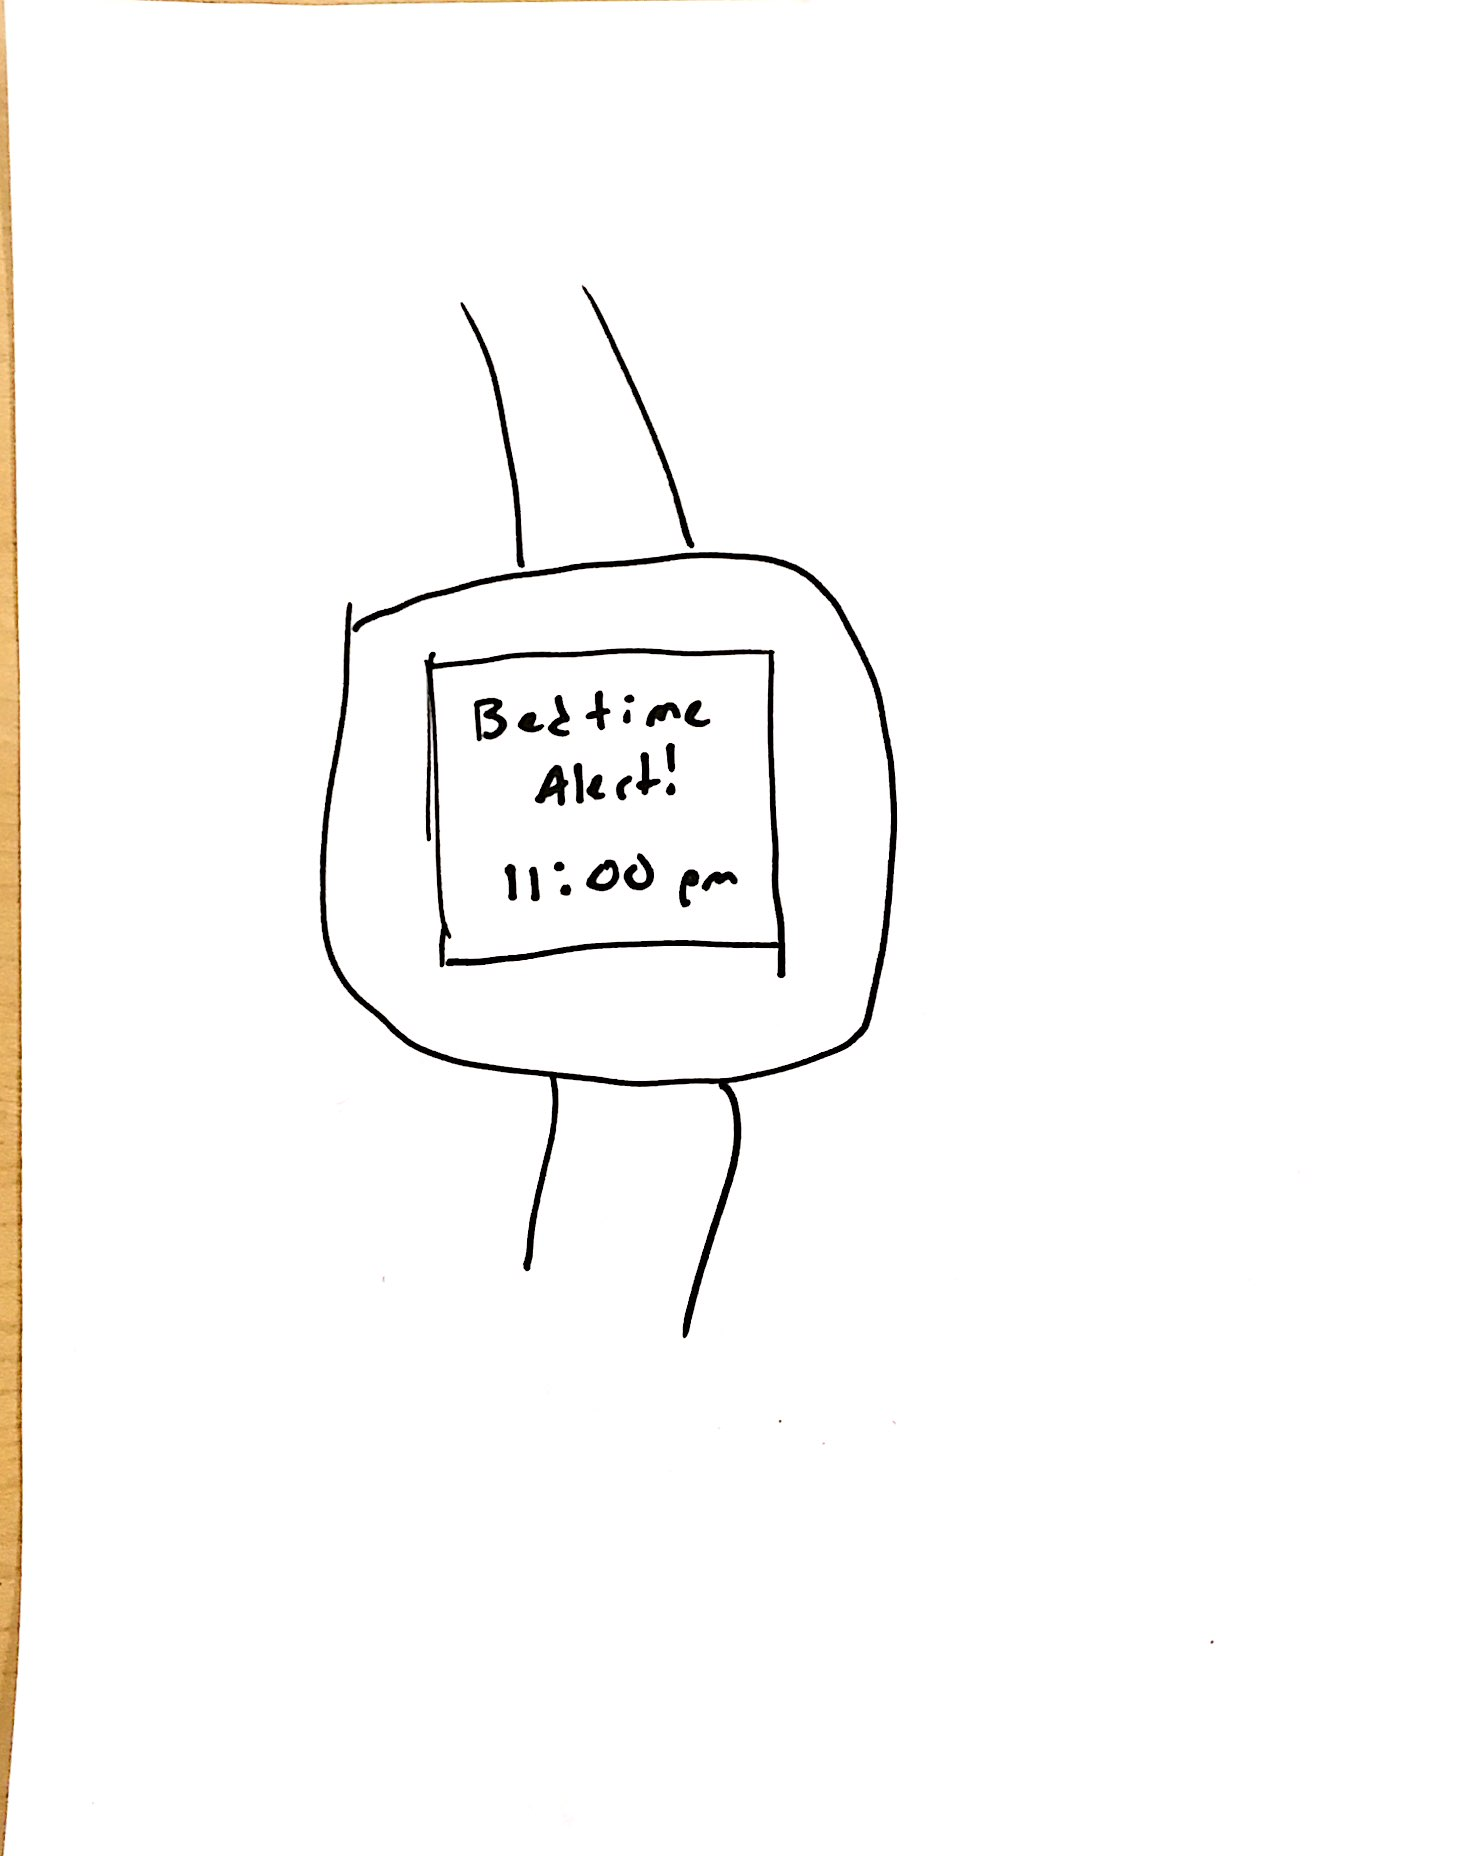 Bedtime
Alert!
11:00 pm